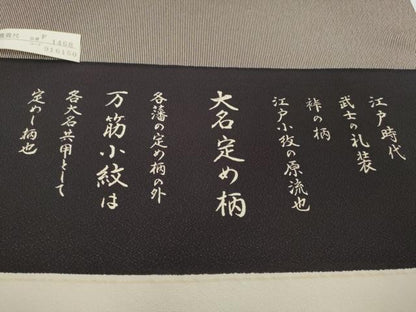 江戸時代
武士の礼装
裃の柄
江戸小紋の原流也
大名定め柄
各藩の定め柄の外
万筋小紋は
各大名共用として
定めし柄也
1468
916150